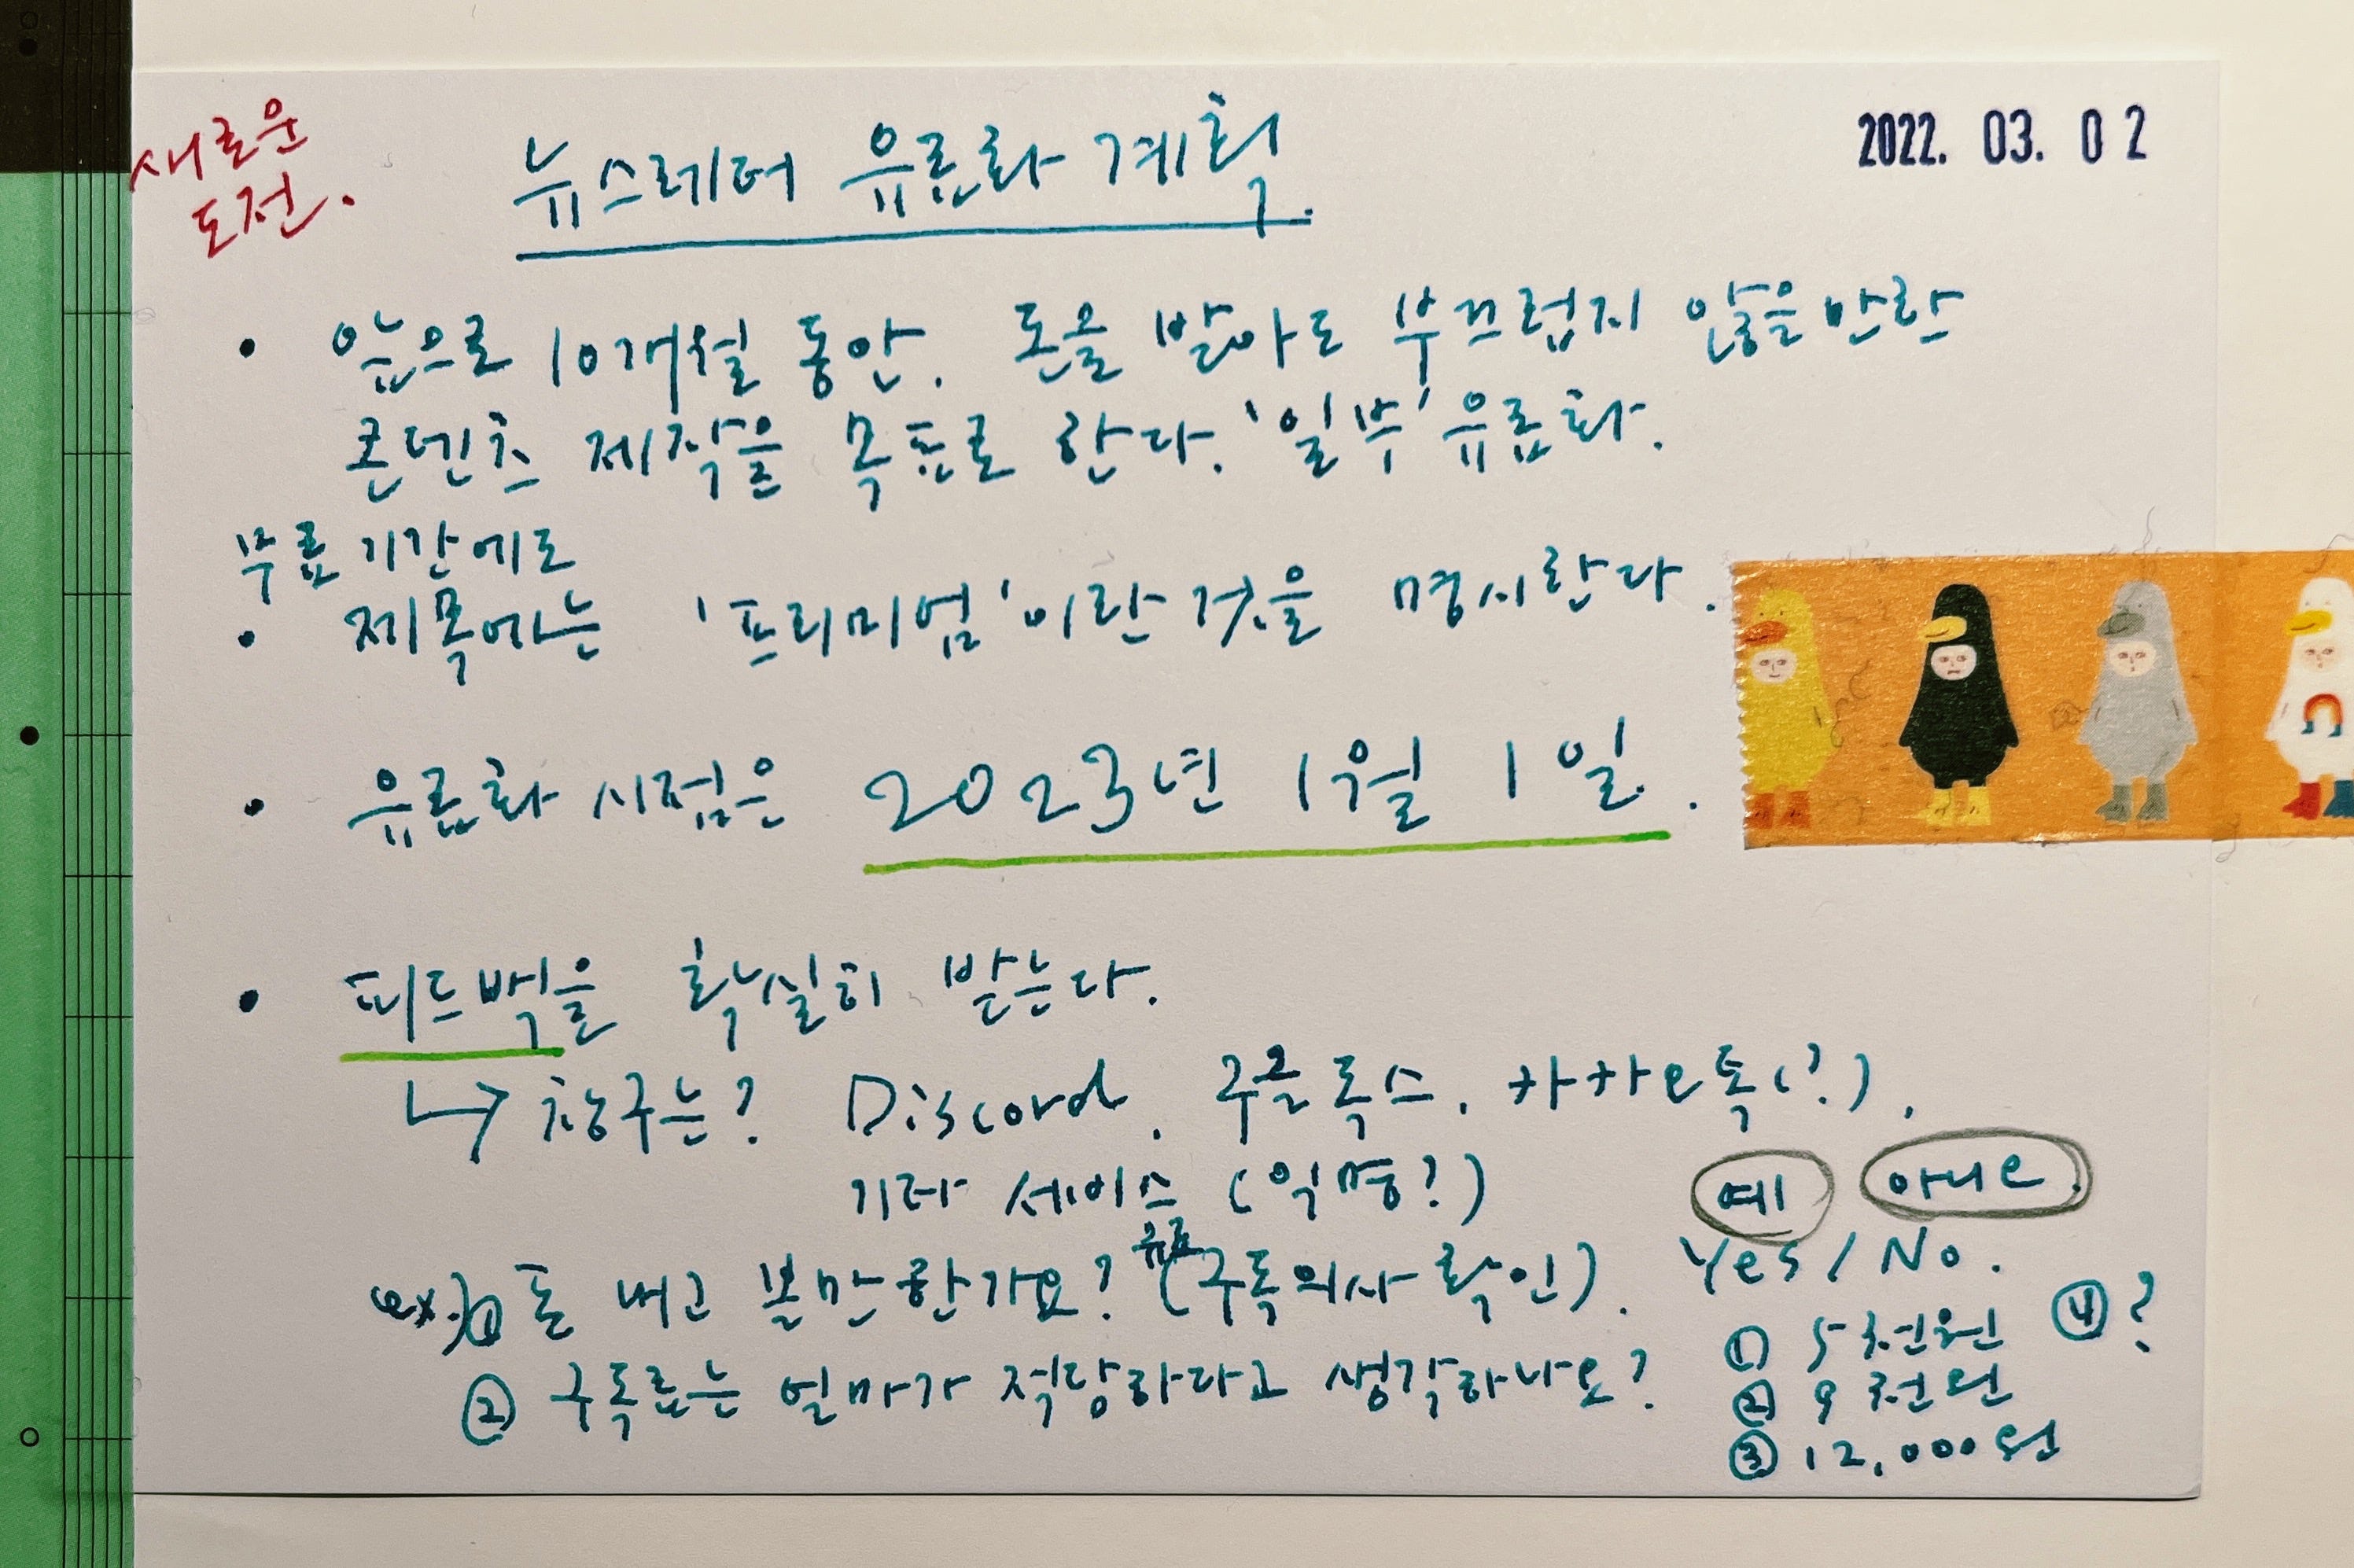 새로운
도전.
뉴스레터 유료화 계획.
2022. 03. 02
• 앞으로 10개월 동안. 돈을 받아도 부끄럽지 않을만한
콘텐츠 제작을 목표로 한다. '일부' 유료화.
무료 기간에도
• 제목에는 '프리미엄'이란 것을 명시한다.
• 유료화 시점은 2023년 1월 1일.
• 피드백을 확실히 받는다.
↳ 창구는? Discord, 구글독스, 카카오톡(?),
기타 서비스 (익명?)
예 아니오.
유료
ex.) ① 돈 내고 볼만한가요? (구독의사 확인). Yes / No.
② 구독료는 얼마가 적당하다고 생각하나요? ① 5천원 ④ ?
② 9천원
③ 12,000원